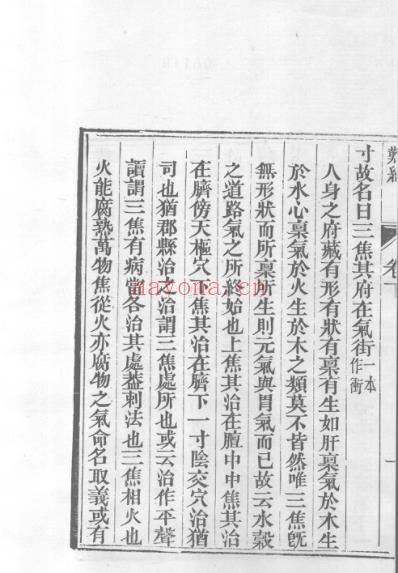 難經
卷下
一
寸故名曰三焦其府在氣街一本作衝
人身之府藏有形有狀有稟有生如肝稟氣於木生
於水心稟氣於火生於木之類莫不皆然唯三焦旣
無形狀而所稟所生則元氣與胃氣而已故云水穀
之道路氣之所終始也上焦其治在膻中中焦其治
在臍傍天樞穴下焦其治在臍下一寸陰交穴治猶
司也猶郡縣治之治謂三焦處所也或云治作平聲
讀謂三焦有病當各治其處蓋刺法也三焦相火也
火能腐熟萬物焦從火亦腐物之氣命名取義或有
nayona.cn